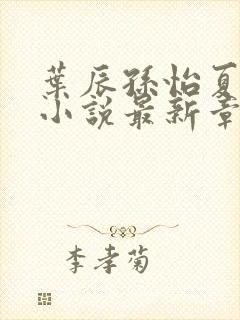 葉辰孫怡夏
小說最新章
李孝菊